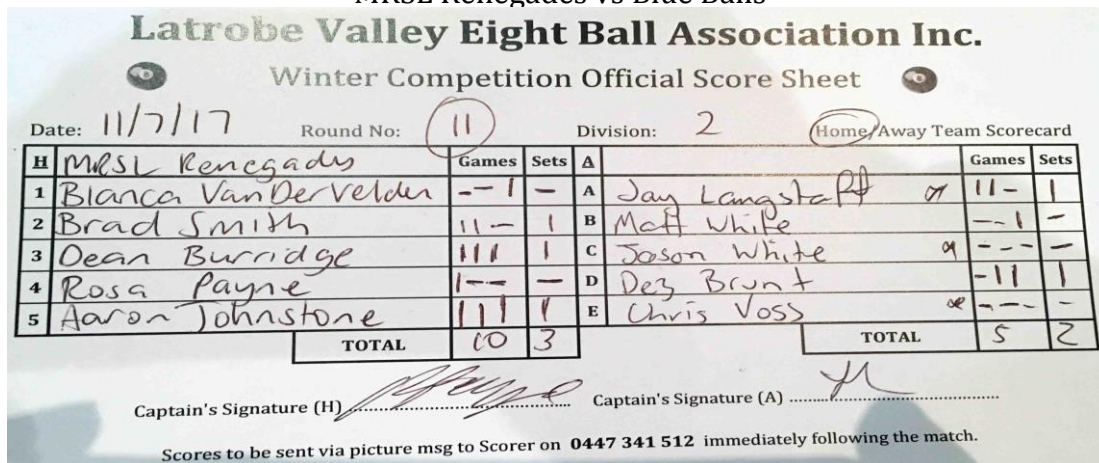 MRSL Renegades vs Blue Balls
Latrobe Valley Eight Ball Association Inc.
Winter Competition Official Score Sheet
Date: 11/7/17 Round No: 11 Division: 2 Home/Away Team Scorecard
H MRSL Renegades Games Sets A Games Sets
1 Blanca VanDerVelden - - 1 - A Jay Langstaff 1 1 - 1
2 Brad Smith 1 1 - 1 B Matt White - - 1 -
3 Dean Burridge 1 1 1 1 C Jason White - - - -
4 Rosa Payne 1 - - - D Dez Brunt - 1 1 1
5 Aaron Johnstone 1 1 1 1 E Chris Voss - - - -
TOTAL 10 3 TOTAL 5 2
Captain's Signature (H) Captain's Signature (A)
Scores to be sent via picture msg to Scorer on 0447 341 512 immediately following the match.